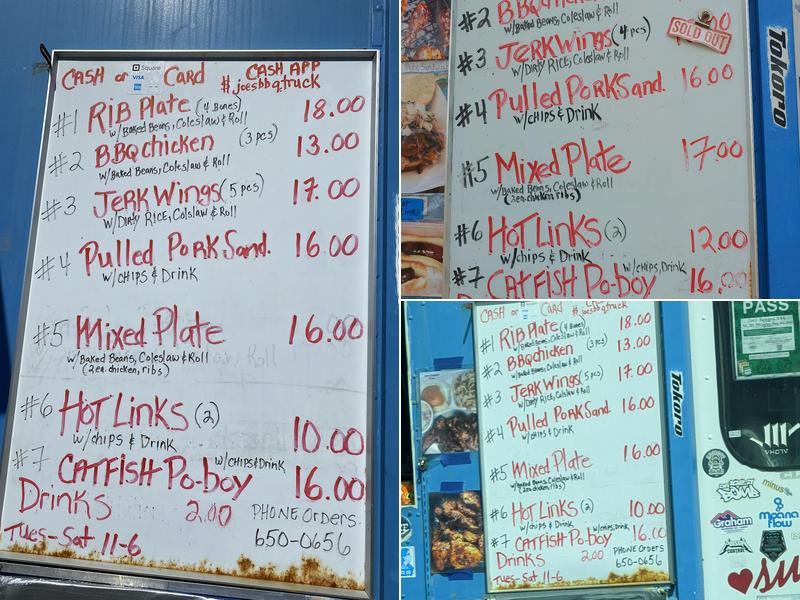 Square
VISA
CASH or CARD CASH APP
# joesbbqtruck
#1 RIB Plate (4 Bones) 18.00
w/Baked Beans, Coleslaw & Roll
#2 BBQ chicken (3 pcs) 13.00
w/Baked Beans, Coleslaw & Roll
#3 JERK Wings (5 pcs) 17.00
W/Dirty Rice, Colslaw & Roll
#4 Pulled PoRK Sand. 16.00
W/CHIPS & Drink
#5 Mixed Plate 16.00
w/Baked Beans, Coleslaw & Roll
(2ea. chicken, ribs)
#6 HoT LINKS (2) 10.00
w/chips & Drink
#7 CATFISH Po-boy w/CHIPS & Drink 16.00
Drinks 2.00 PHONE Orders
650-0656
Tues-Sat 11-6
#2 BBQ chicken
w/Baked Beans, Coleslaw & Roll
SOLD OUT
#3 JERK Wings (4 pcs)
W/Dirty Rice, Coleslaw & Roll
#4 Pulled PorK Sand. 16.00
w/CHIPS & Drink
#5 Mixed Plate 17.00
w/Baked Beans, Coleslaw & Roll
(2ea. chicken, ribs)
#6 HOT LINKS (2) 12.00
w/chips & Drink
#7 CATFISH Po-boy w/chips, Drink 16.00
Tokoro
CASH or CARD #joesbbqtruck
#1 RIB Plate (4 Bones) 18.00
w/Baked Beans, Coleslaw & Roll
#2 BBQ chicken (3 pcs) 13.00
w/Baked Beans, Coleslaw & Roll
#3 JERK Wings (5 pcs) 17.00
W/Dirty Rice, Colslaw & Roll
#4 Pulled PoRK Sand. 16.00
W/CHIPS & Drink
#5 Mixed Plate 16.00
w/Baked Beans, Coleslaw & Roll
(2ea. chicken, ribs)
#6 HoT LINKS (2) 10.00
w/chips & Drink
#7 CATFISH Po-boy w/chips, Drink 16.00
Drinks 2.00 PHONE Orders
650-0656
Tues-Sat 11-6
Tokoro
PASS
VHDTV
minus
Graham
moana
flow
CONTROL